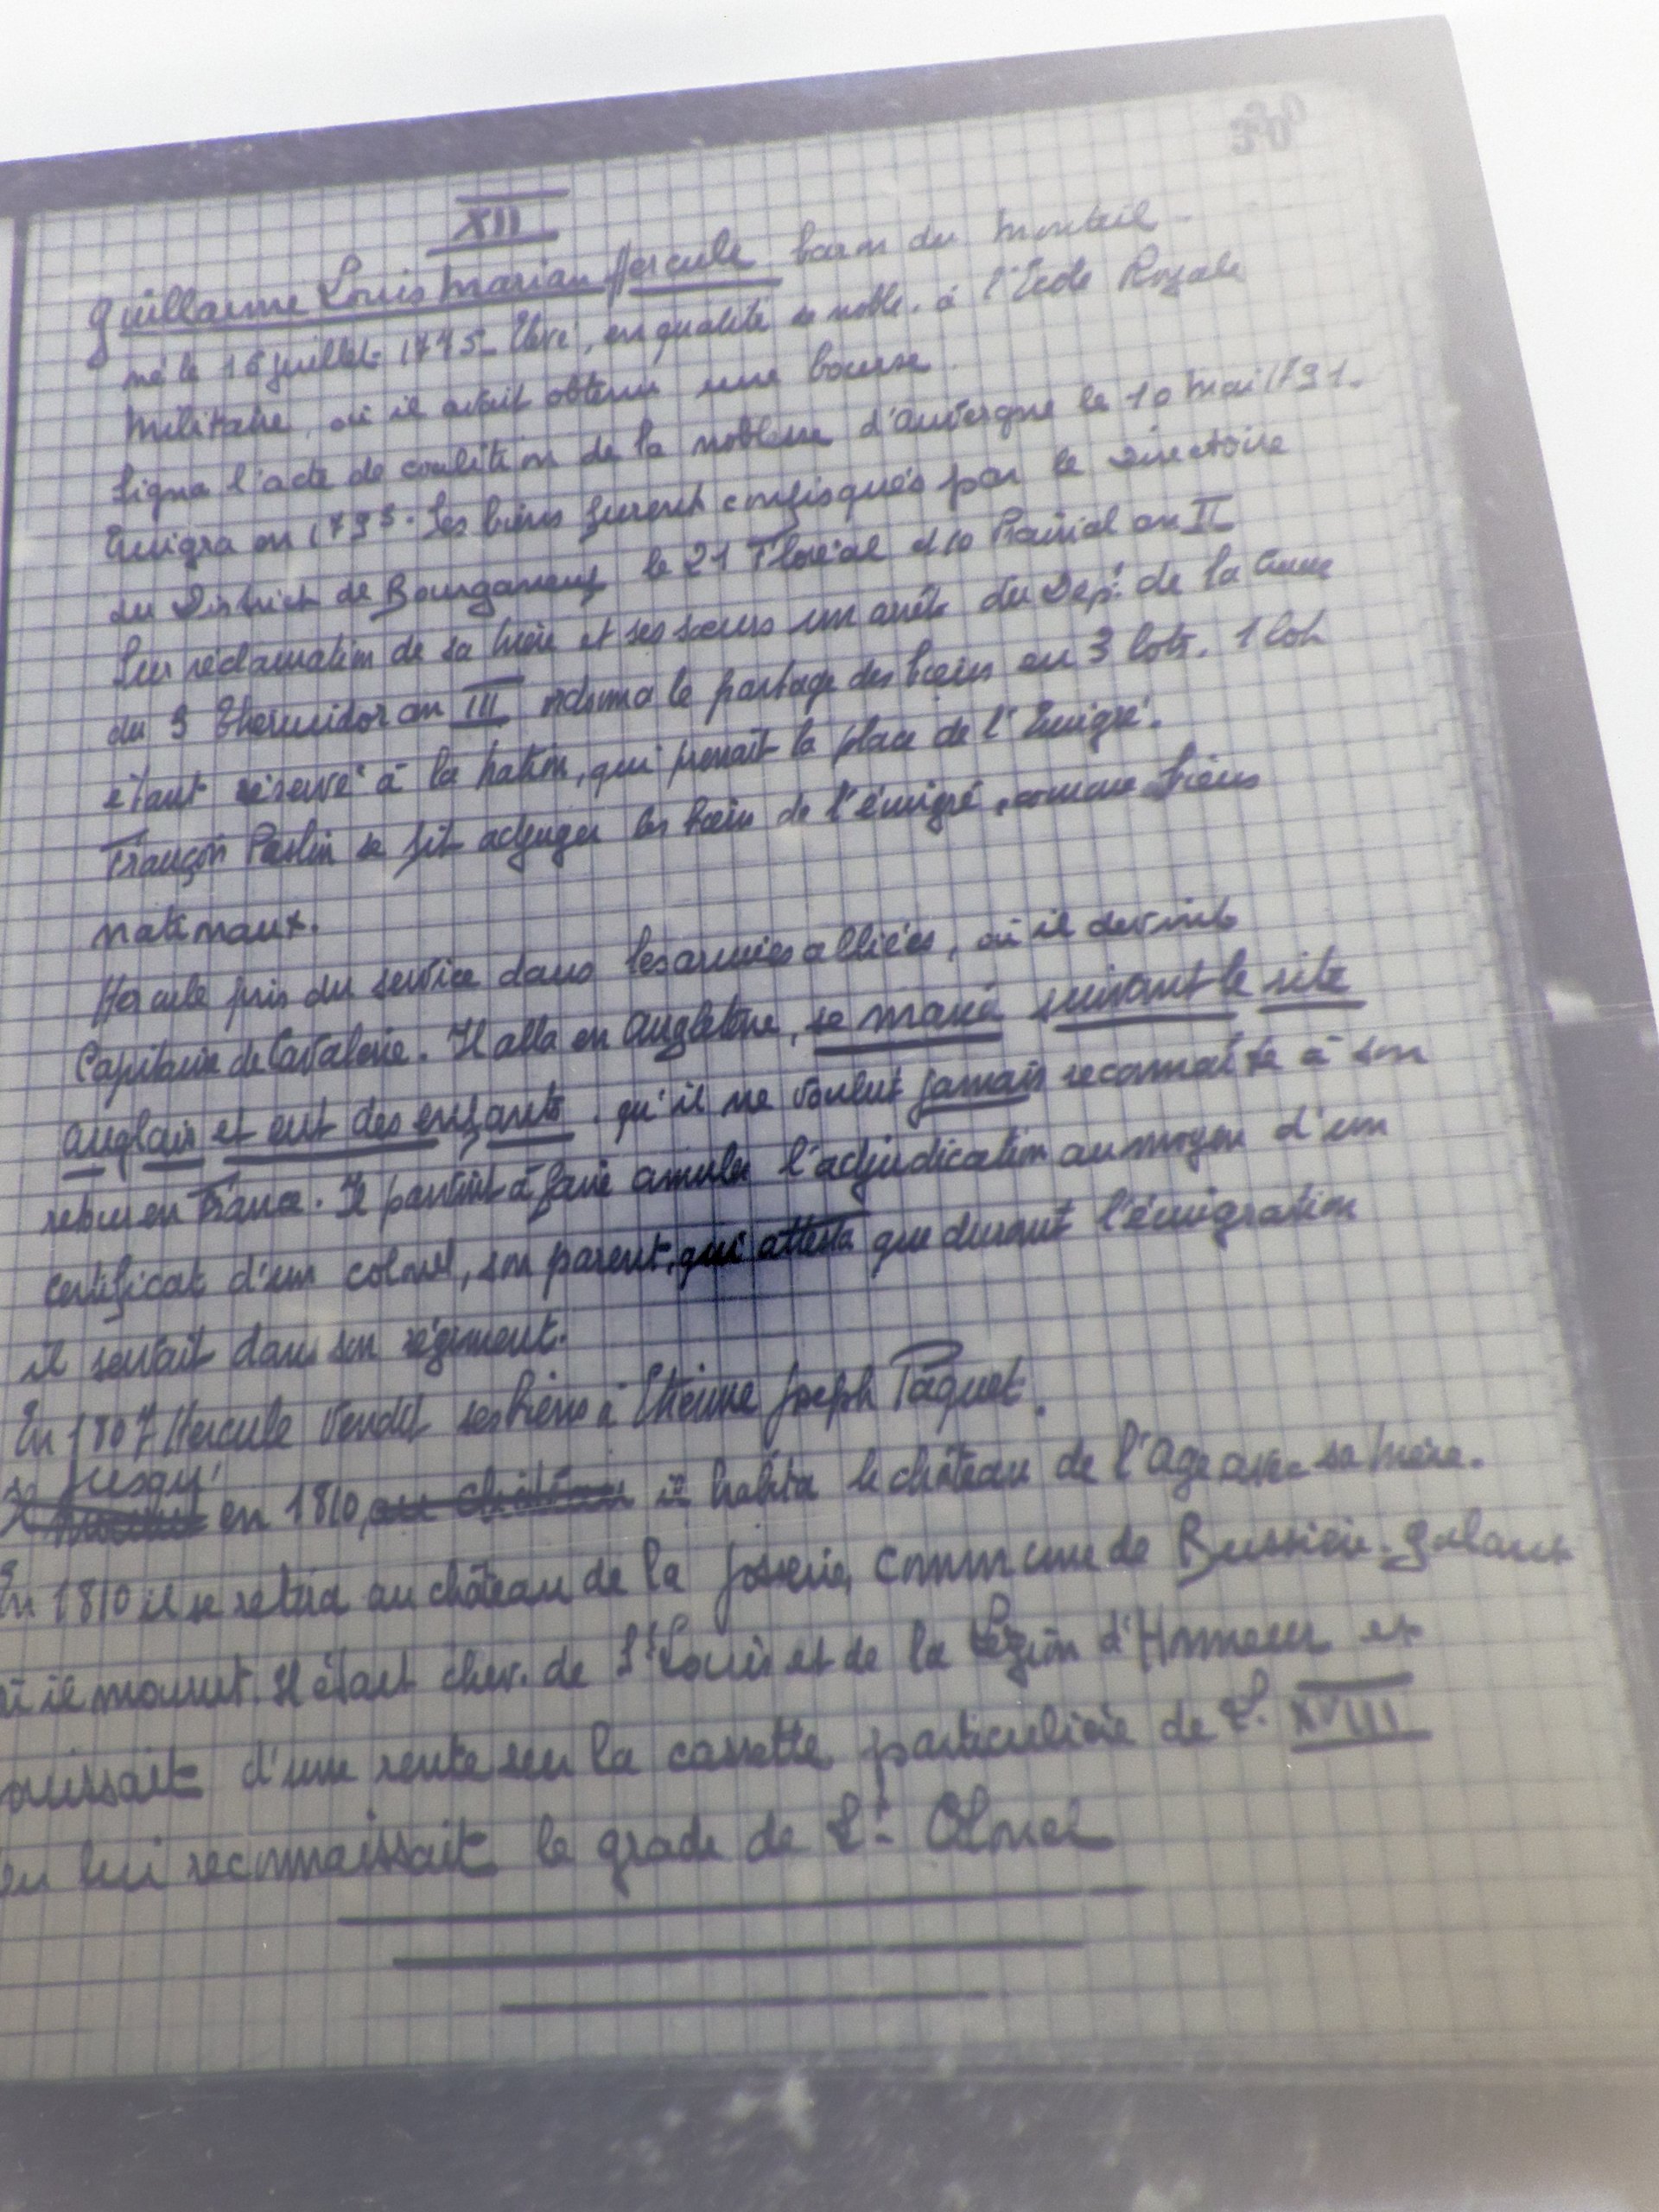 XII
Guillaume Louis Marian Hercule baron du Monteil
né le 16 juillet 1775. Elevé, en qualité de noble, à l'Ecole Royale
Militaire, où il avait obtenu une bourse.
Signa l'acte de coalition de la noblesse d'Auvergne le 10 Mai 1791.
Emigra en 1793. Ses biens furent confisqués par le Directoire
du District de Bourganeuf le 21 Floréal et 10 Prairial an II
Sur réclamation de sa Mère et ses sœurs un arrêté du Dept de la Creuse
du 9 Thermidor an III ordonna le partage des biens en 3 lots. 1 lot
étant réservé à la Nation, qui prenait la place de l'Emigré.
François se fit adjuger les biens de l'émigré, comme biens
nationaux.
Hercule pris du service dans les armées alliées, où il devint
Capitaine de Cavalerie. Il alla en Angleterre, se maria suivant le rite
anglais et eut des enfants. qu'il ne voulut jamais reconnaître à son
retour en France. Il parvint à faire annuler l'adjudication au moyen d'un
certificat d'un colonel, son parent, qui attesta que durant l'émigration
il servait dans son régiment.
En 1807 Hercule vendit ses biens à Etienne Joseph Paquet.
Jusqu'
en 1810, au château il habita le château de l'Age avec sa Mère.
En 1810 il se retira au château de la Josserie, Commune de Bussière-Galant
où il mourut. Il était chev. de St Louis et de la Légion d'Honneur et
jouissait d'une rente sur la cassette particulière de L. XVIII
lui reconnaissait le grade de Lt Colonel